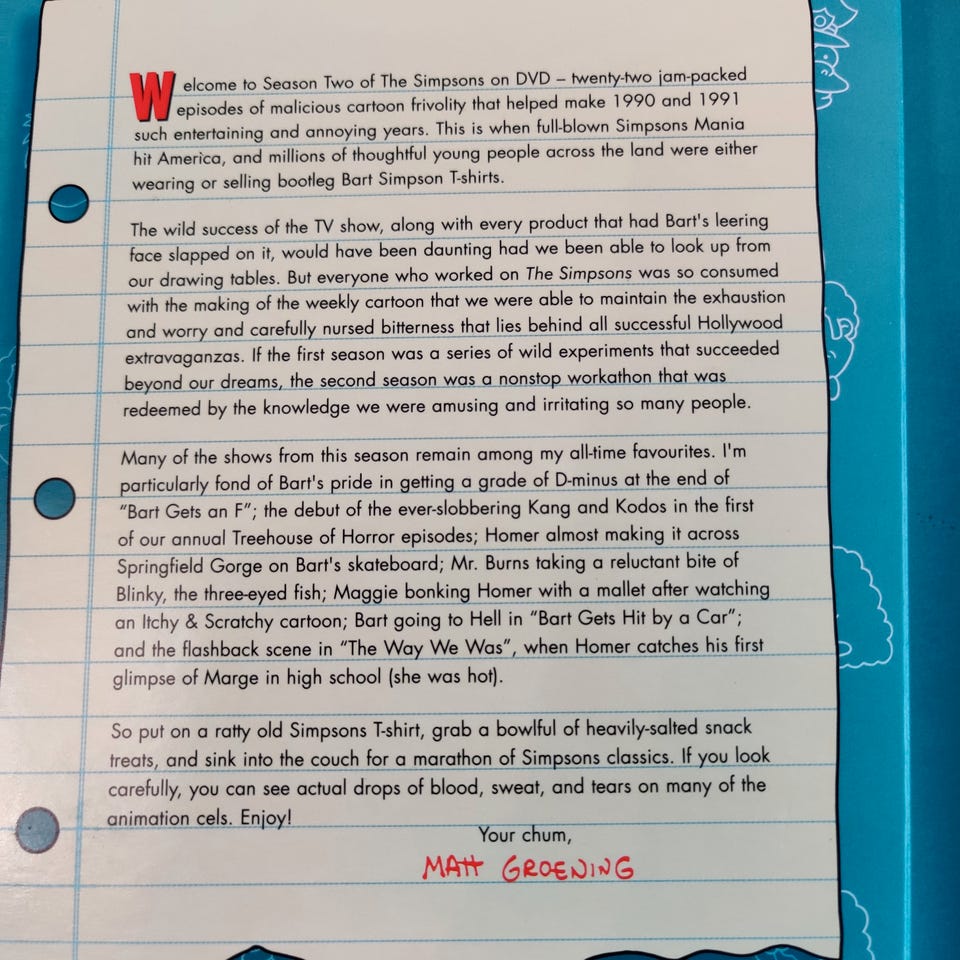 Welcome to Season Two of The Simpsons on DVD – twenty-two jam-packed
episodes of malicious cartoon frivolity that helped make 1990 and 1991
such entertaining and annoying years. This is when full-blown Simpsons Mania
hit America, and millions of thoughtful young people across the land were either
wearing or selling bootleg Bart Simpson T-shirts.
The wild success of the TV show, along with every product that had Bart's leering
face slapped on it, would have been daunting had we been able to look up from
our drawing tables. But everyone who worked on The Simpsons was so consumed
with the making of the weekly cartoon that we were able to maintain the exhaustion
and worry and carefully nursed bitterness that lies behind all successful Hollywood
extravaganzas. If the first season was a series of wild experiments that succeeded
beyond our dreams, the second season was a nonstop workathon that was
redeemed by the knowledge we were amusing and irritating so many people.
Many of the shows from this season remain among my all-time favourites. I'm
particularly fond of Bart's pride in getting a grade of D-minus at the end of
“Bart Gets an F”; the debut of the ever-slobbering Kang and Kodos in the first
of our annual Treehouse of Horror episodes; Homer almost making it across
Springfield Gorge on Bart's skateboard; Mr. Burns taking a reluctant bite of
Blinky, the three-eyed fish; Maggie bonking Homer with a mallet after watching
an Itchy & Scratchy cartoon; Bart going to Hell in “Bart Gets Hit by a Car”;
and the flashback scene in “The Way We Was”, when Homer catches his first
glimpse of Marge in high school (she was hot).
So put on a ratty old Simpsons T-shirt, grab a bowlful of heavily-salted snack
treats, and sink into the couch for a marathon of Simpsons classics. If you look
carefully, you can see actual drops of blood, sweat, and tears on many of the
animation cels. Enjoy!
Your chum,
MATT GROENING